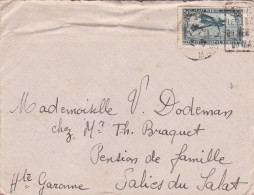 Mademoiselle V. Dodeman
chez Mr Th. Braquet
Pension de famille
Hte Garonne Salies du Salat